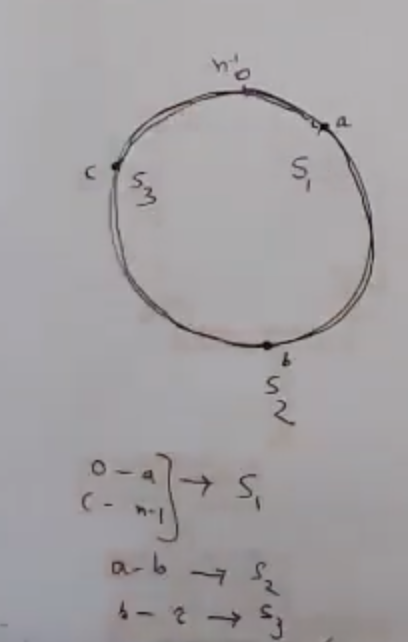 n-1
0
a
c
S3
S1
b
S2
0 - a
c - n-1 → S1
a - b → S2
b - c → S3